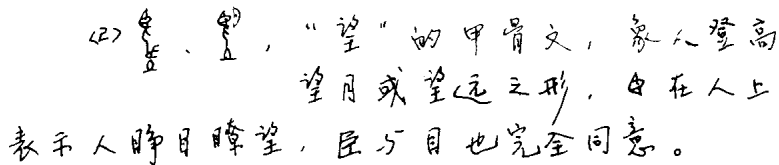 〈2〉、，“望”的甲骨文，象人登高
望月或望远之形，在人上
表示人睁目瞭望，臣与目也完全同意。